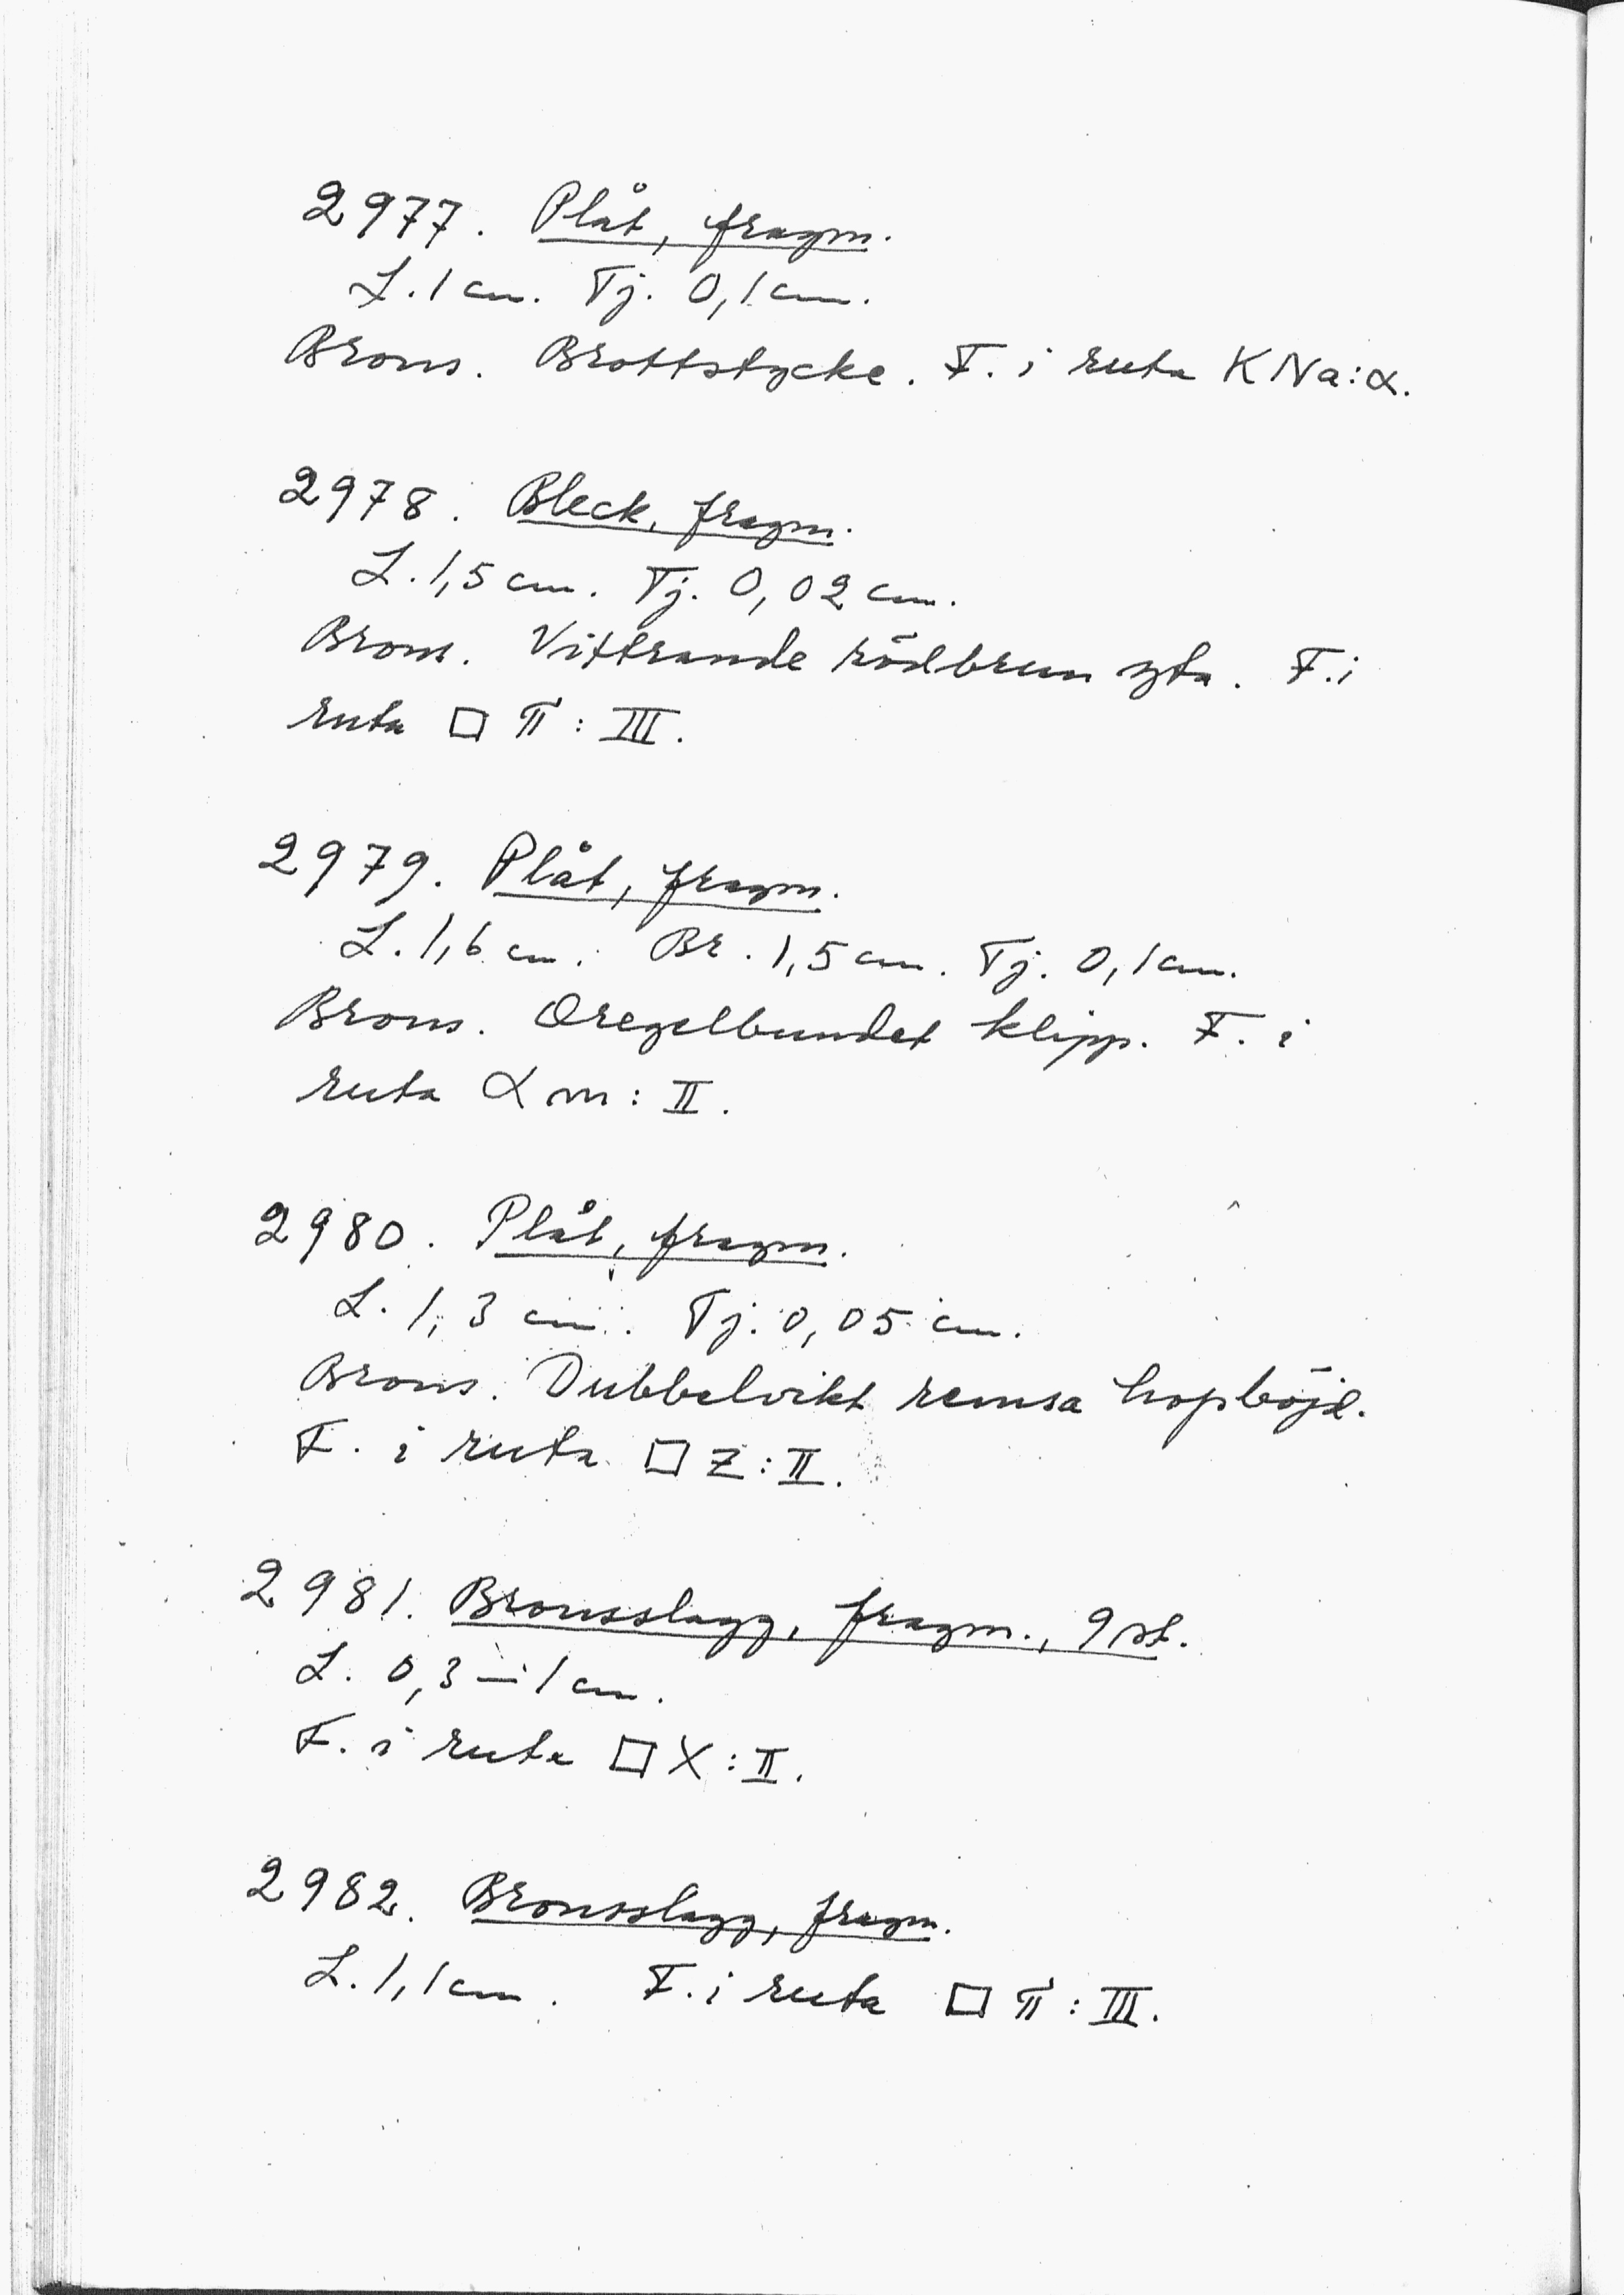 2977. Plåt, fragm.
L. 1 cm. Tj. 0,1 cm.
Brons. Brottstycke. F. i ruta KNa:α.
2978. Bleck, fragm.
L. 1,5 cm. Tj. 0,02 cm.
Brons. Vittrande rödbrun yta. F. i
ruta □ π : III.
2979. Plåt, fragm.
L. 1,6 cm. Br. 1,5 cm. Tj. 0,1 cm.
Brons. Oregelbundet klipp. F. i
ruta α m : II.
2980. Plåt, fragm.
L. 1,3 cm. Tj. 0,05 cm.
Brons. Dubbelvikt remsa hopböjd.
F. i ruta □ Z : II.
2981. Bronsslagg, fragm., 9 st.
L. 0,3 – 1 cm.
F. i ruta □ X : II.
2982. Bronsslagg, fragm.
L. 1,1 cm. F. i ruta □ π : III.